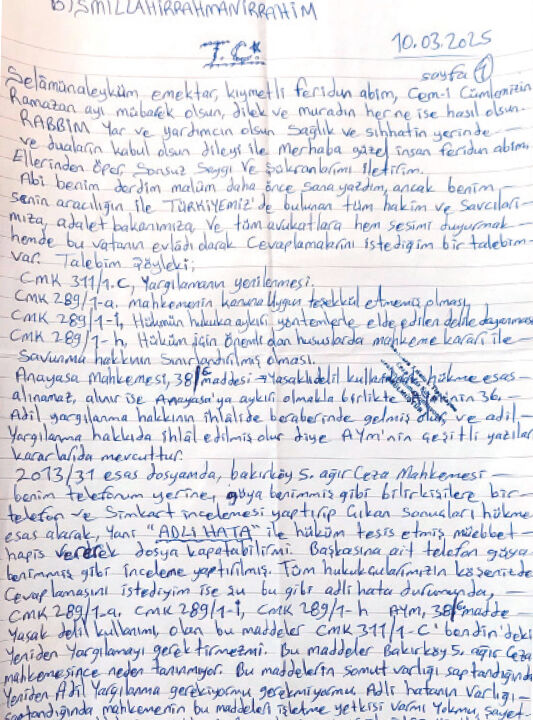 BİSMİLLAHİRRAHMANİRRAHİM
10.03.2025
T.C*
sayfa 1
Selâmünaleyküm emektar, kıymetli feridun abim, Cem-i Cümlenizin
Ramazan ayı mübarek olsun, dilek ve muradın her ne ise hasıl olsun.
RABBİM Yar ve yardımcın olsun Sağlık ve sıhhatin yerinde
ve duaların kabul olsun dileyi ile merhaba güzel insan feridun abim,
Ellerinden öper Sonsuz Saygı ve şükranlarımı iletirim.
Abi benim derdim malüm daha önce sana yazdım, ancak benim
senin aracılığın ile TÜRKİYEMİZ'de bulunan tüm hakim ve Savcıları-
mıza, adalet bakanımıza ve tüm avukatlara hem sesimi duyurmak
hemde bu vatanın evlâdı olarak Cevaplamalarını istediğim bir talebim-
var. Talebim şöyleki;
CMK 311/1.C, Yargılamanın yenilenmesi.
CMK 289/1-a. mahkemenin kanuna uygun teşekkül etmemiş olması,
CMK 289/1-i, Hükmün hukuka aykırı yöntemlerle elde edilen delile dayanması
CMK 289/1-h, Hüküm için önemli olan hususlarda mahkeme kararı ile
Savunma hakkının Sınırlandırılmış olması.
Anayasa Mahkemesi, 38/6 maddesi → Yasaklı delil hükme esas-
alınamaz, alınır ise Anayasa'ya aykırı olmakla birlikte 36.
Adil yargılanma hakkının ihlâlide beraberinde gelmiş olur, ve adil-
Yargılanma hakkıda ihlâl edilmiş olur diye AYM'nin çeşitli yazılar
kararlarıda mevcuttur.
2013/31 esas dosyamda, bakırköy 5. ağır Ceza Mahkemesi
benim telefonum yerine, güya benimmiş gibi bilirkişilere bir-
telefon ve Simkart incelemesi yaptırıp Çıkan sonuçları hükme
esas alarak, Yani "ADLİ HATA" ile hüküm tesis etmiş müebbet-
hapis vererek dosya kapatabilirmi. Başkasına ait telefon güya
benimmiş gibi inceleme yaptırılmış. Tüm hukukcularımızın köşenizde
Cevaplamasını istediğim ise şu bu gibi adli hata durumunda,
CMK 289/1-a. CMK 289/1-i, CMK 289/1-h AYM, 38/6 madde-
Yasak delil kullanımı, olan bu maddeler CMK 311/1-C' bendin'deki
Yeniden Yargılamayı gerektirmezmi. Bu maddeler Bakırköy 5. ağır Ceza
mahkemesince neden tanınmıyor. Bu maddelerin somut varlığı saptandığında
Yeniden Adil Yargılanma gerekiyormu gerekmiyormu. Adli hatanın Varlığı-
saptandığında mahkemenin bu maddeleri işletme yetkisi varmı Yokmu, şayet